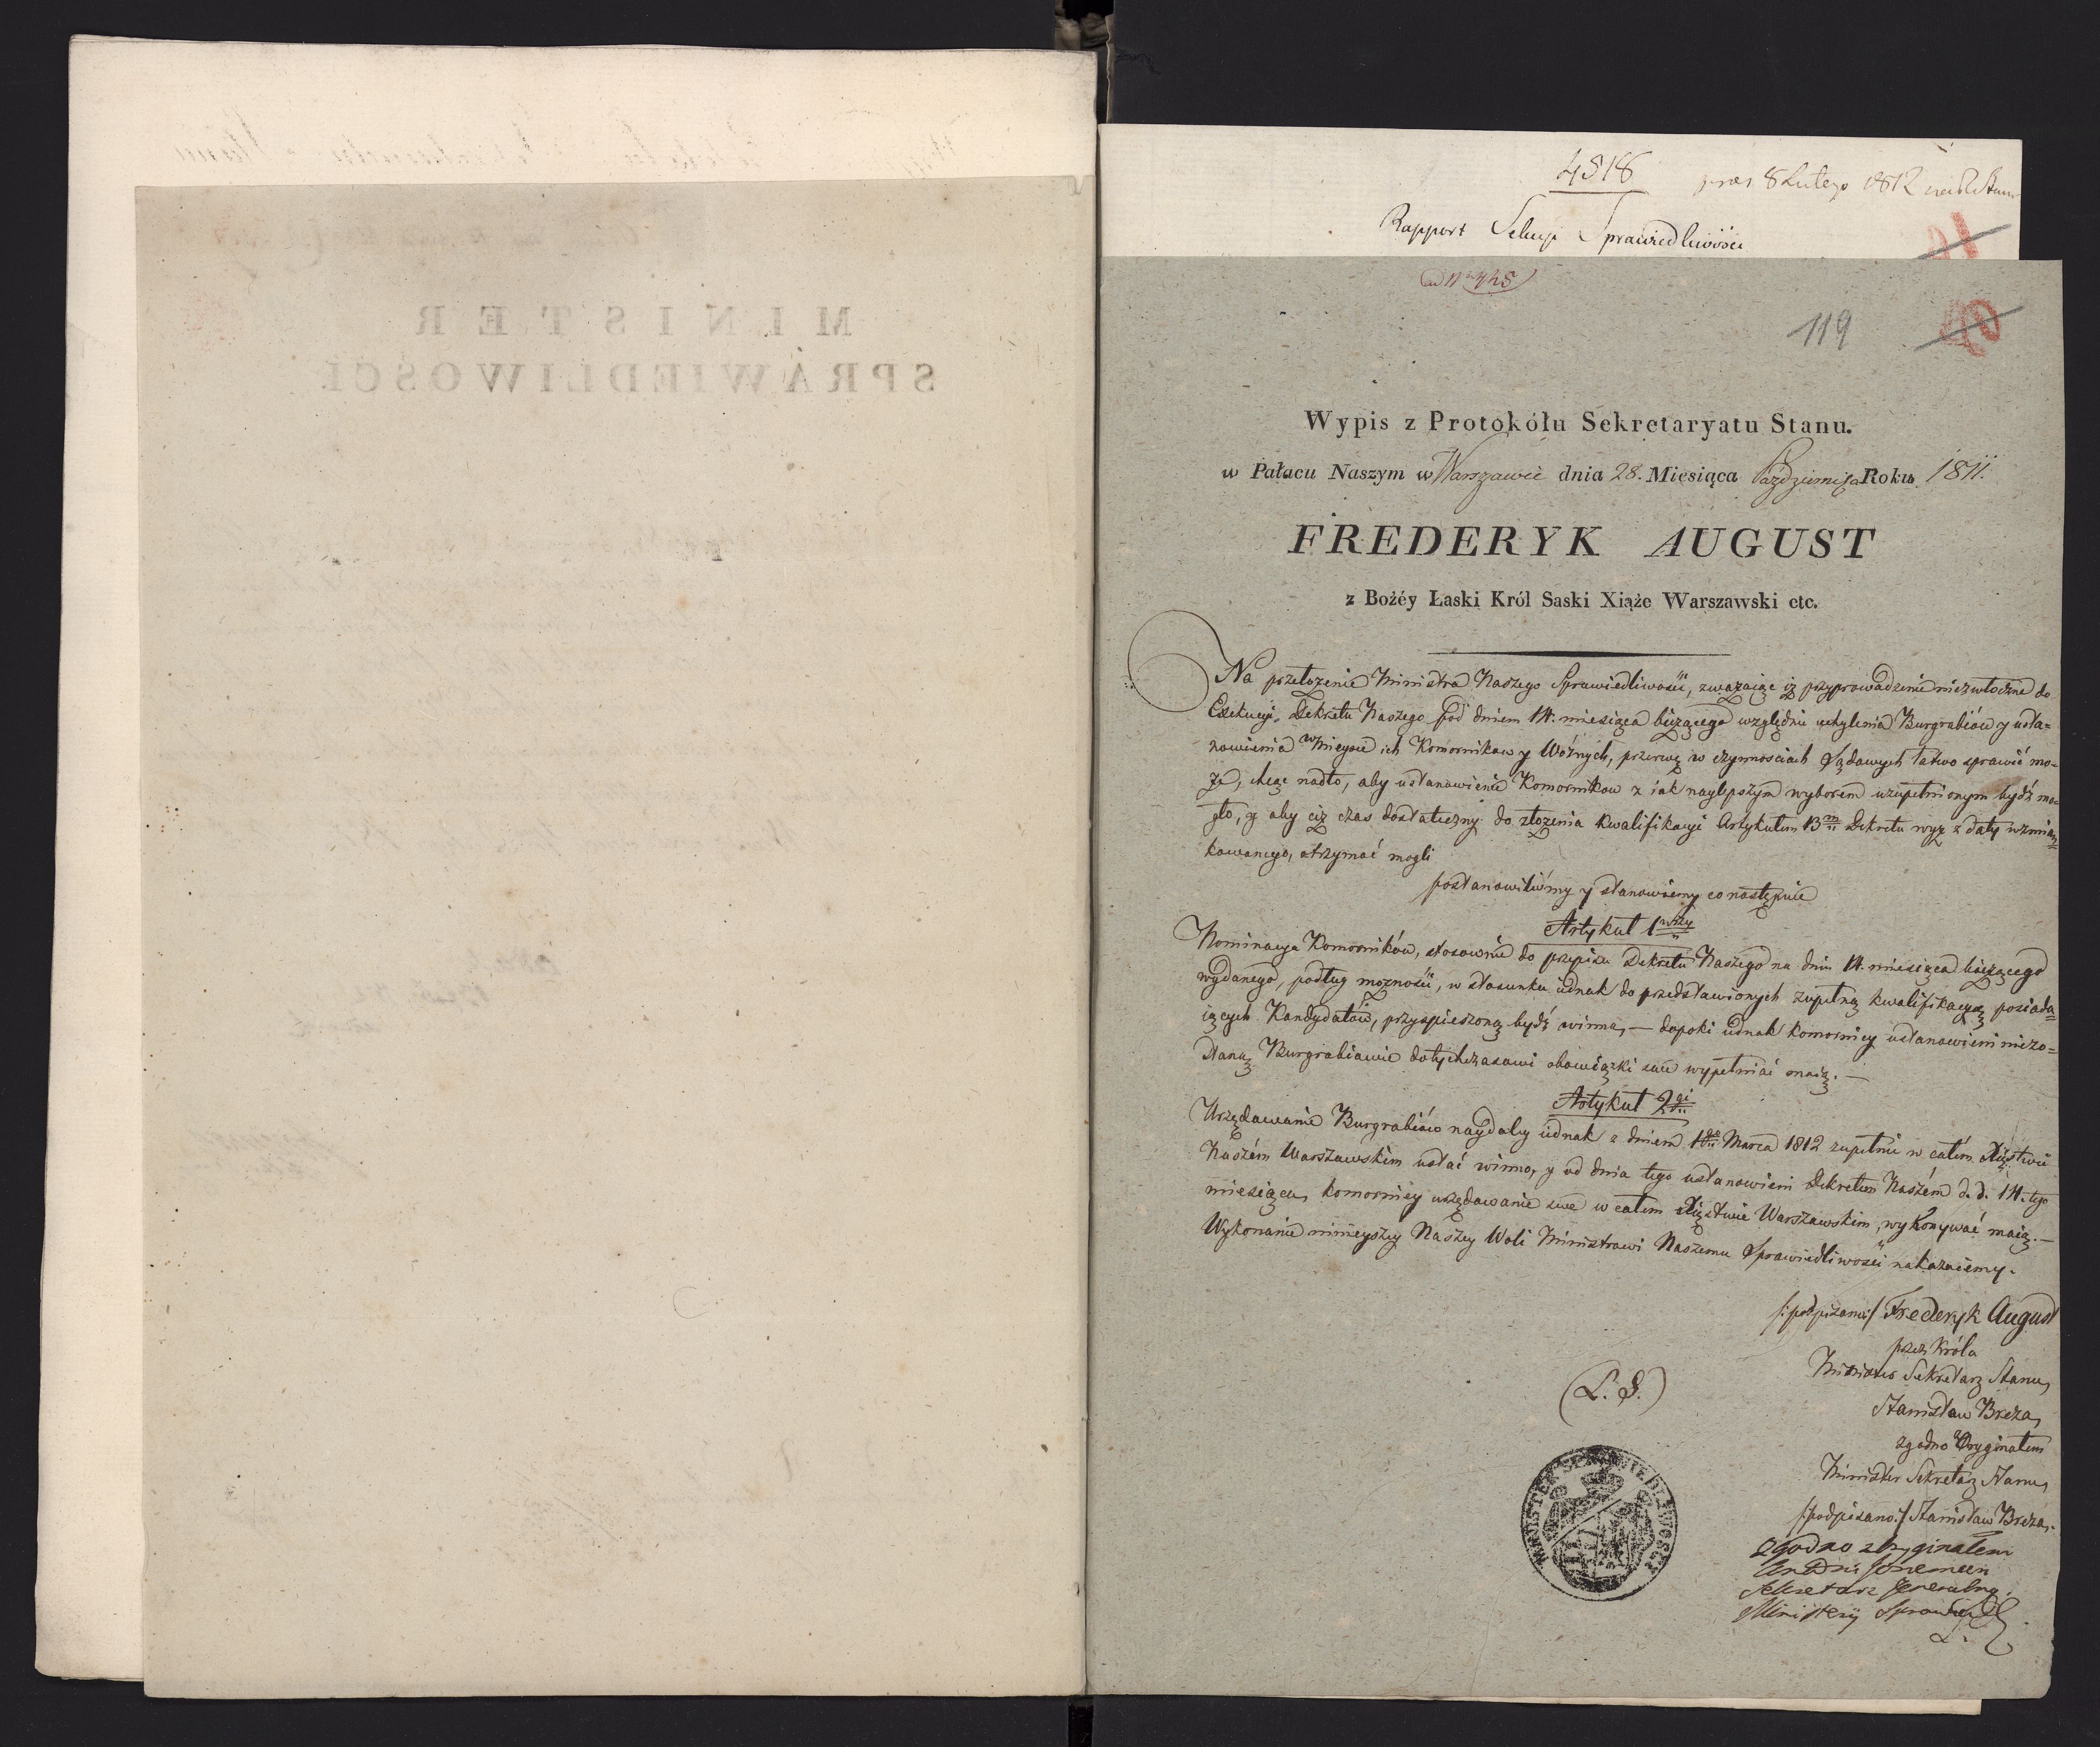 4518
præs 8 Lutego 1812
Rapport Sekcyi Sprawiedliwości
ad Nr 425
119
Wypis z Protokółu Sekretaryatu Stanu.
w Pałacu Naszym w Warszawie dnia 28. Miesiąca Października Roku 1811.
FREDERYK AUGUST
z Bożéy Łaski Król Saski Xiąże Warszawski etc.
Na przełożenie Ministra Naszego Sprawiedliwości, zważaiąc iż przyprowadzenie niezwłoczne do
Exekucyi, Dekretu Naszego pod dniem 14. miesiąca bieżącego względnie uchylenia Burgrabiów y usta=
nowienia w mieysce ich Komorników y Woźnych, przerwę w czynnościach Sądowych łatwo sprawić mo=
że, chcąc nadto, aby ustanowienie Komorników z iak naylepszym wyborem uzupełnionym bydź mo=
gło, y aby ciż czas dostateczny do złożenia kwalifikacyi Artykułem 13m Dekretu wyż z daty wzmian=
kowanego, otrzymać mogli
postanowiliśmy y stanowiemy co następuie
Artykuł 1wszy
Nominacya Komorników, stosownie do przepisu Dekretu Naszego na dniu 14. miesiąca bieżącego
wydanego, podług możności, w stosunku iednak do przedstawionych zupełną kwalifikacyą posiada=
iących Kandydatów, przyspieszoną bydź winna, — dopoki iednak komornicy ustanowieni niezo=
staną, Burgrabiowie dotychczasowi obowiązki swe wypełniać maią. —
Artykuł 2gi
Urzędowanie Burgrabiów naydaley iednak z dniem 1go Marca 1812 zupełnie w całém Xięstwie
Naszém Warszawskim ustać winno, y od dnia tego ustanowieni Dekretem Naszém d. d. 14. tego
miesiąca, komornicy urzędowanie swe w całem Xięstwie Warszawskim, wykonywać maią. —
Wykonanie ninieyszey Naszey Woli Ministrowi Naszemu Sprawiedliwości nakazuiemy.
/:podpisano:/ Frederyk August
przez Króla
Minister Sekretarz Stanu,
(L. S.)
Stanisław Breza,
zgodno z Oryginałem
Minister Sekretarz Stanu,
/:podpisano:/ Stanisław Breza,
MINISTER SPRAWIEDLIWOSCI
Zgodno z Oryginałem
Sekretarz Jeneralny
Ministerij Sprawiedl
MINISTER
SPRAWIEDLIWOŚCI.